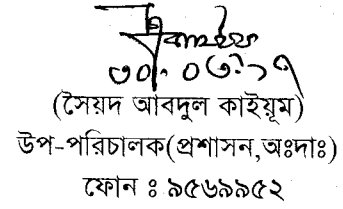 ৩০.০৩.১৭
(সৈয়দ আবদুল কাইয়ূম)
উপ-পরিচালক(প্রশাসন,অঃদাঃ)
ফোন ঃ ৯৫৬৯৯৫২